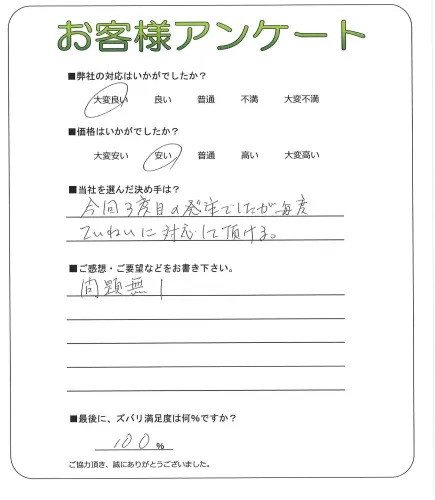 お客様アンケート
■弊社の対応はいかがでしたか？
大変良い 良い 普通 不満 大変不満
■価格はいかがでしたか？
大変安い 安い 普通 高い 大変高い
■当社を選んだ決め手は？
今回3度目の発注でしたが毎度
ていねいに対応して頂ける。
■ご感想・ご要望などをお書き下さい。
問題無し
■最後に、ズバリ満足度は何%ですか？
100 %
ご協力頂き、誠にありがとうございました。